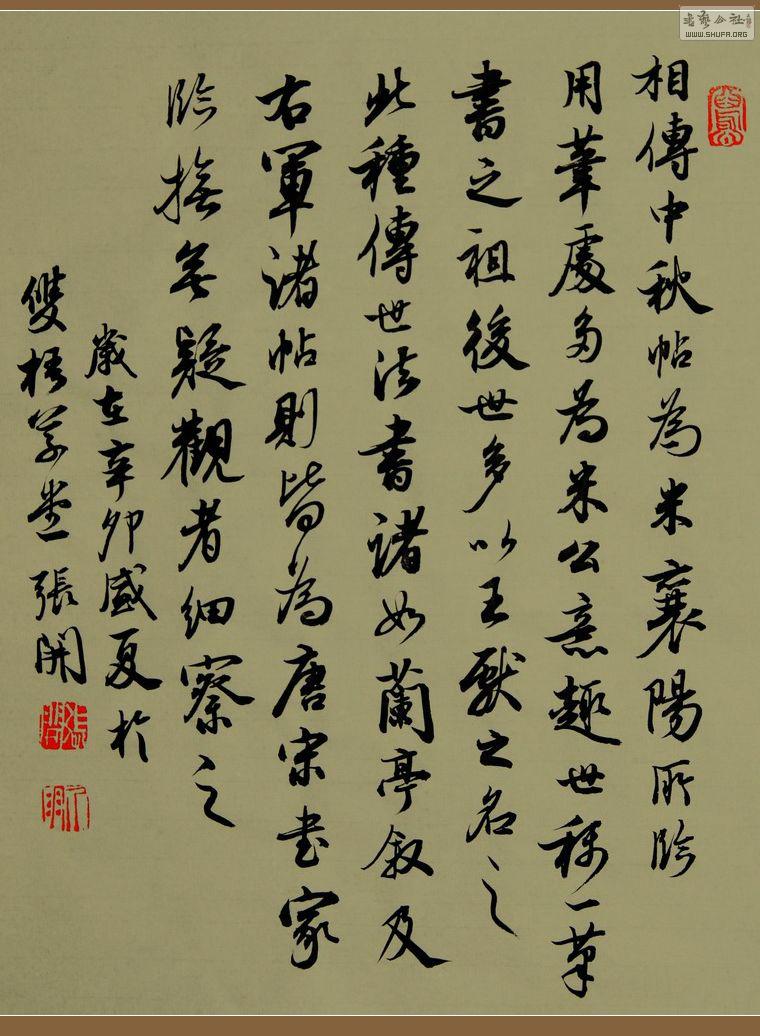 相傳中秋帖為米襄陽所臨
用筆處多為米公意趣世稱一筆
書之祖後世多以王獻之名之
此種傳世法書諸如蘭亭叙及
右軍諸帖則皆為唐宋书家
臨摹無疑觀者細察之
歲在辛卯盛夏於
雙梧草堂張開
书艺公社
WWW.SHUFA.ORG